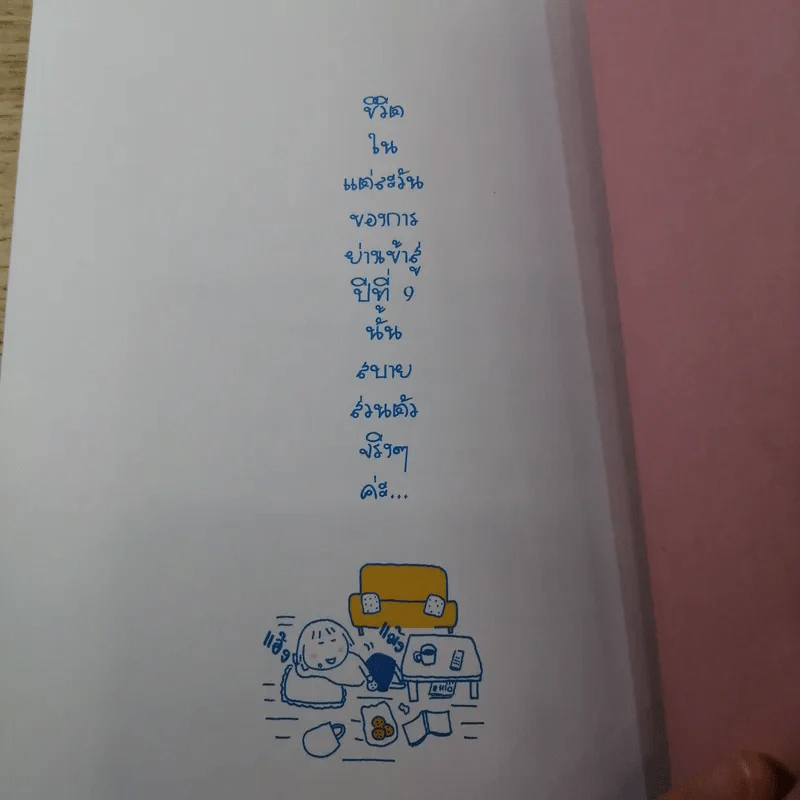 ชีวิต
ใน
แต่ละวัน
ของการ
ย่านเข้าสู่
ปีที่ 9
นั้น
สบาย
ส่วนตัว
จริงๆ
ค่ะ...